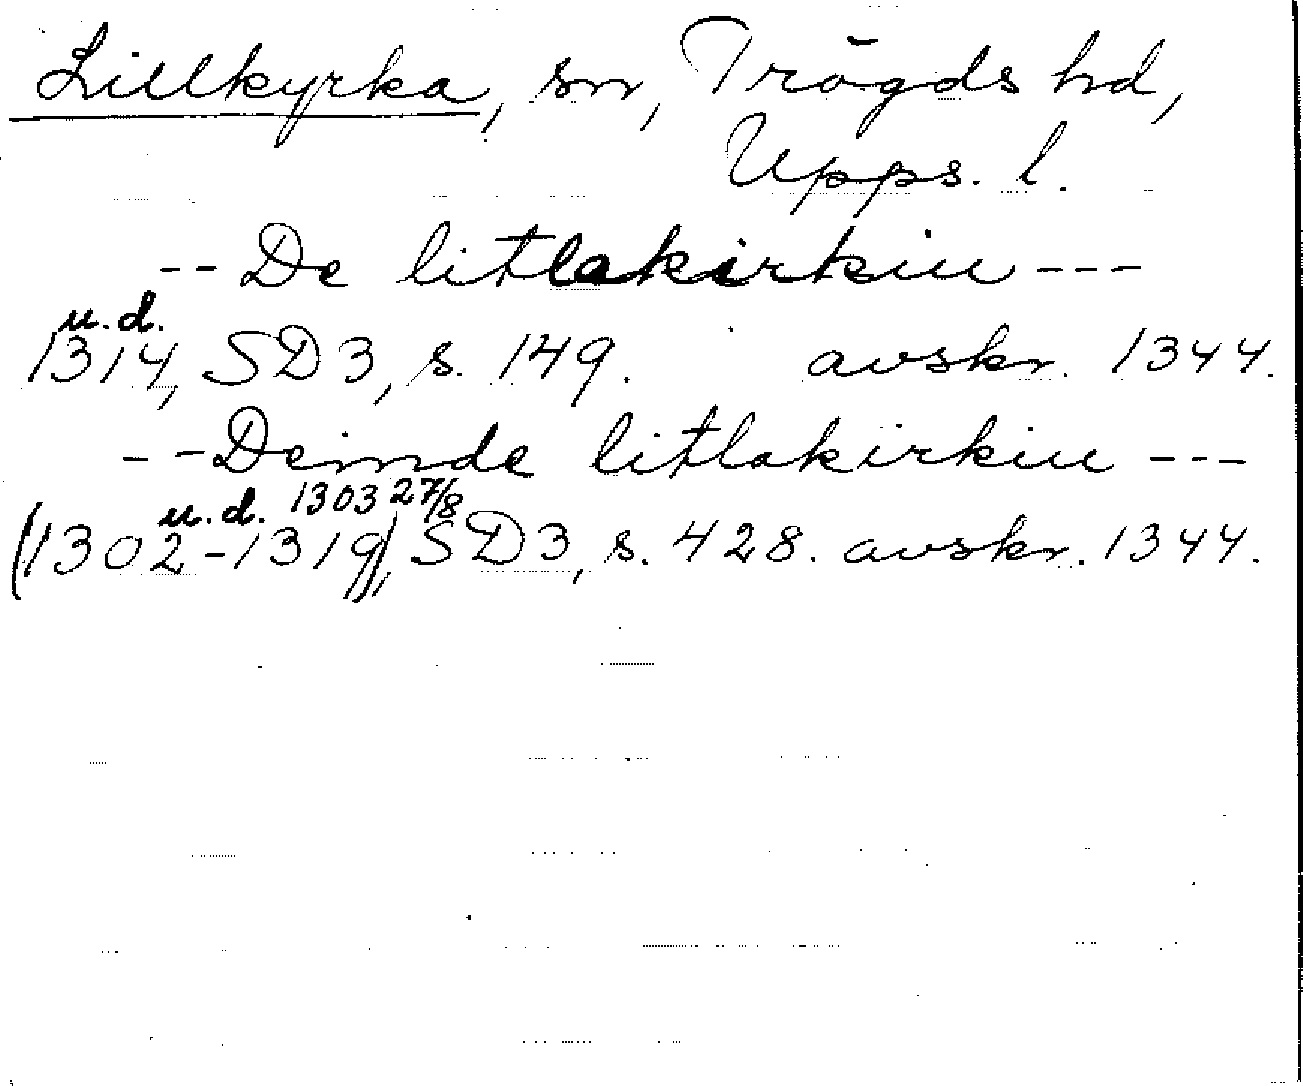 Lillkyrka, sn, Trögds hd,
Upps. l.
-- De litlakirkiu ---
u. d.
1314, SD 3, s. 149. avskr. 1344.
-- Deinde litlakirkiu ---
u. d. 1303 27/8
(1302-1319), SD 3, s. 428. avskr. 1344.